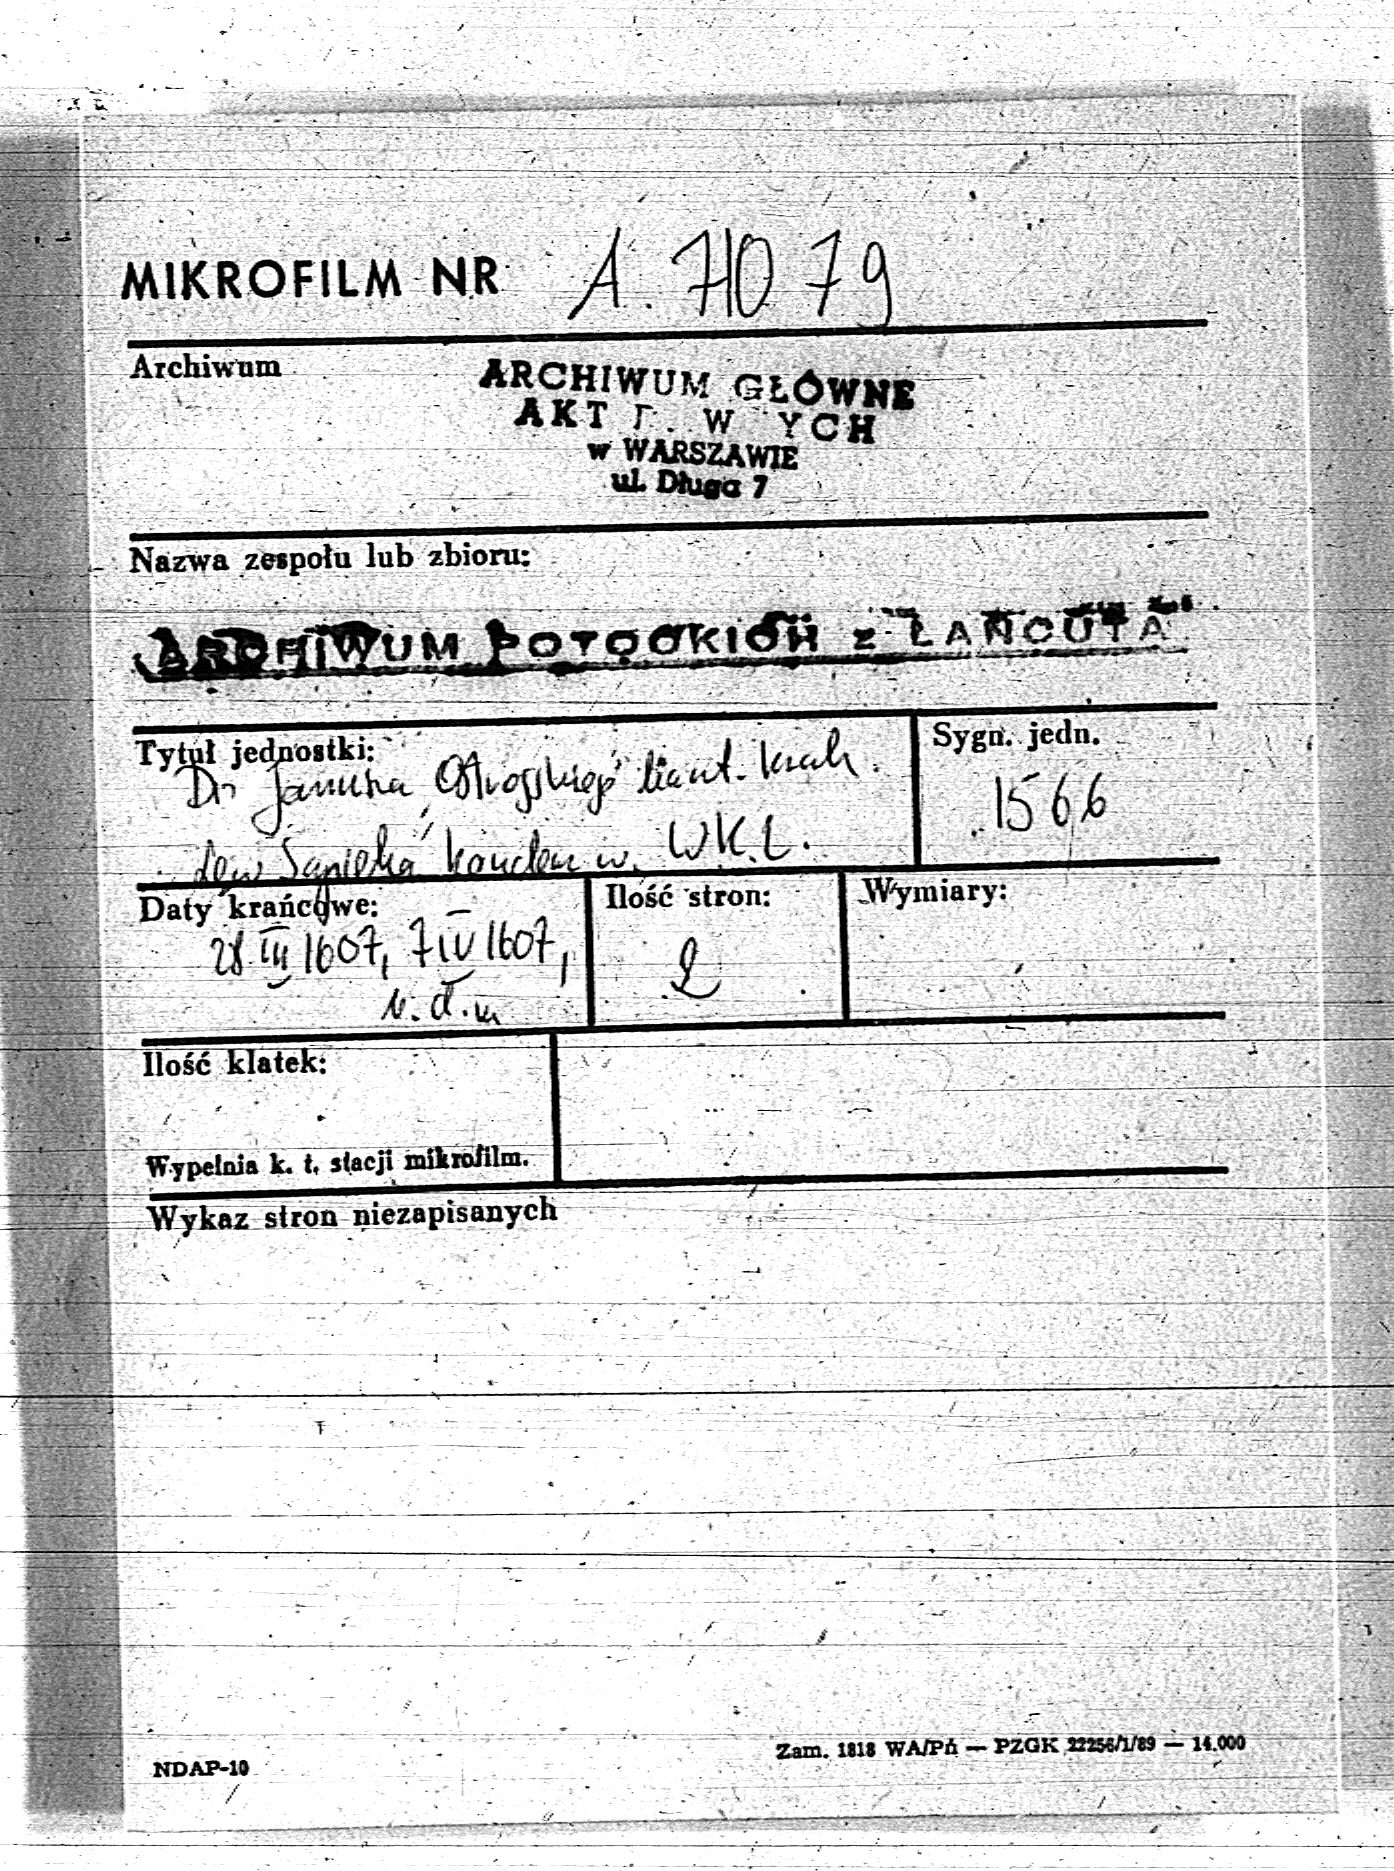 MIKROFILM NR A. 71079
Archiwum
ARCHIWUM GŁÓWNE
AKT D. W YCH
w WARSZAWIE
ul. Długa 7
Nazwa zespołu lub zbioru:
ARCHIWUM POTOCKICH z ŁAŃCUTA
Tytuł jednostki:
Do Janusza Ostrogskiego kaszt. krak.
Lew Sapieha kanclerz w. WK.L.
Sygn. jedn.
1566
Daty krańcowe:
28 III 1607, 7 IV 1607,
b.d.m
Ilość stron:
2
Wymiary:
Ilość klatek:
Wypełnia k. t. stacji mikrofilm.
Wykaz stron niezapisanych
NDAP-10
Zam. 1818 WA/Pń — PZGK 22256/1/89 — 14.000